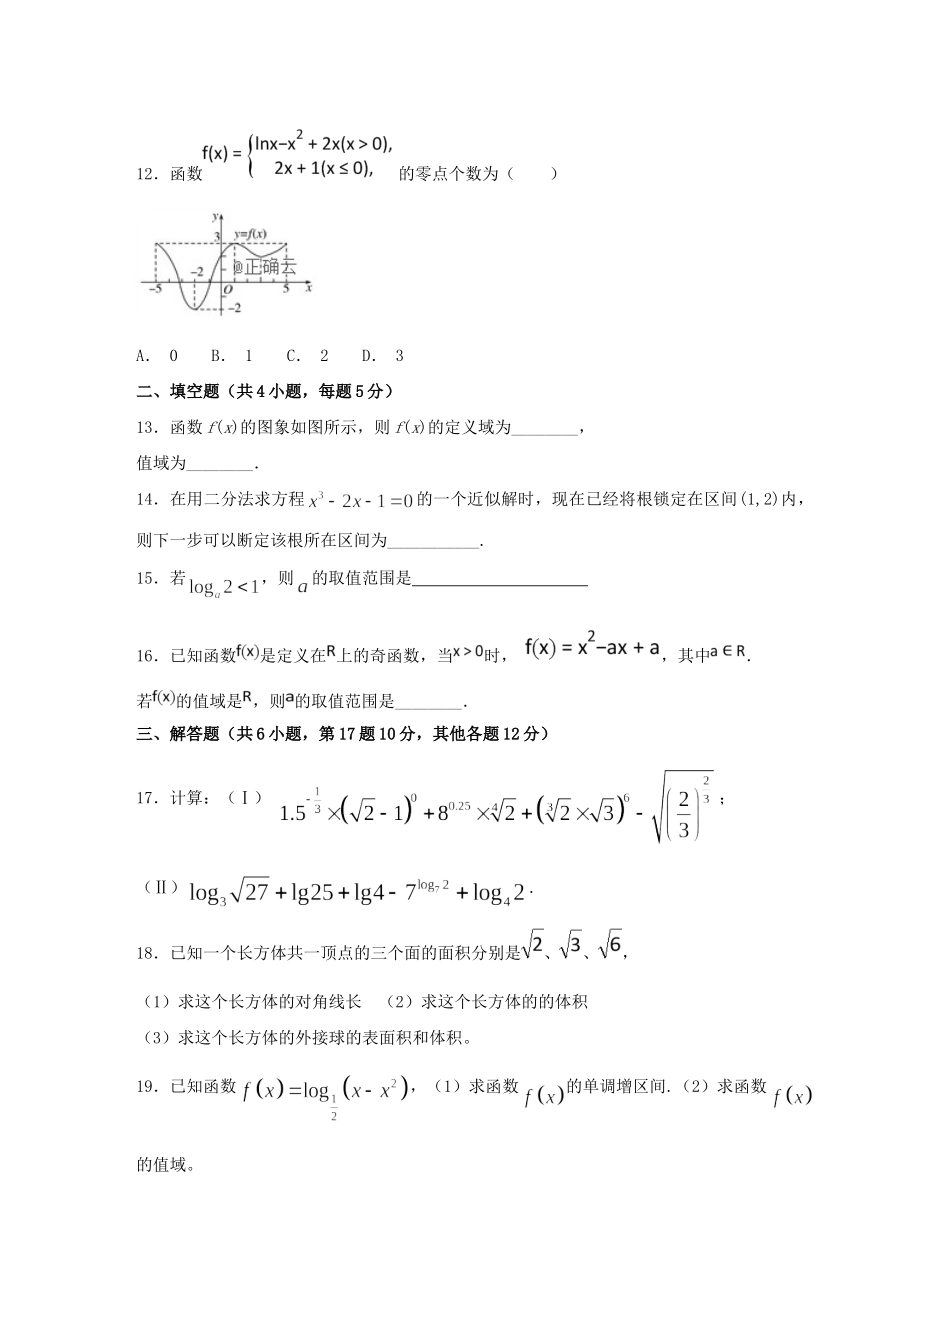 12. 函数 f(x) = { lnx−x²+2x(x>0), 2x+1(x≤0), 的零点个数为（　　）
y
3 y=f(x)
@正确云
-5 -2 O 5 x
-2
A. 0　B. 1　C. 2　D. 3
二、填空题（共4小题，每题5分）
13. 函数 f(x)的图象如图所示，则 f(x)的定义域为________，
值域为________.
14. 在用二分法求方程 x³－2x－1=0 的一个近似解时，现在已经将根锁定在区间(1,2)内，
则下一步可以断定该根所在区间为___________.
15. 若 logₐ2<1，则 a 的取值范围是____________________
16. 已知函数f(x)是定义在R上的奇函数，当x>0时， f(x) = x²−ax + a，其中a ∈ R.
若f(x)的值域是R，则a的取值范围是________.
三、解答题（共6小题，第17题10分，其他各题12分）
17. 计算：（Ⅰ） 1.5^(-1/3)×(√2−1)^0+8^0.25×⁴√2+(³√2×√3)^6−√((2/3)^(2/3)) ；
（Ⅱ）log₃√27+lg25+lg4−7^(log₇2)+log₄2.
18. 已知一个长方体共一顶点的三个面的面积分别是√2、√3、√6，
（1）求这个长方体的对角线长　（2）求这个长方体的的体积
（3）求这个长方体的外接球的表面积和体积。
19. 已知函数 f(x)=log_(1/2)(x−x²)，（1）求函数 f(x)的单调增区间.（2）求函数 f(x)
的值域。